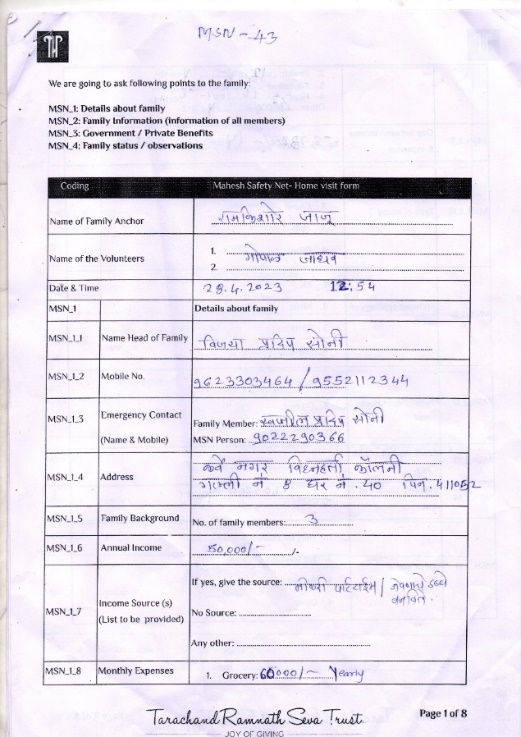 MSN - 43
We are going to ask following points to the family:
MSN_1: Details about family
MSN_2: Family Information (information of all members)
MSN_3: Government / Private Benefits
MSN_4: Family status / observations
Coding Mahesh Safety Net- Home visit form
Name of Family Anchor रामकिशोर जाजू
Name of the Volunteers 1. गोपाल जाधव
2.
Date & Time 28.4.2023 12:54
MSN_1 Details about family
MSN_1_1 Name Head of Family विजया प्रदिप सोनी
MSN_1_2 Mobile No. 9623303464 / 9552112344
MSN_1_3 Emergency Contact (Name & Mobile) Family Member: स्वप्नील प्रदिप सोनी
MSN Person: 9022290366
MSN_1_4 Address कर्वे नगर विघ्नहर्ता कॉलनी
गल्ली नं 8 घर नं. 40 पिन. 411052
MSN_1_5 Family Background No. of family members: 3
MSN_1_6 Annual Income 150,000/- /-
MSN_1_7 Income Source (s) (List to be provided) If yes, give the source: नोकरी पार्टटाईम / जेवणाचे डब्बे
No Source:
Any other:
MSN_1_8 Monthly Expenses 1. Grocery: 60000/- Yearly
Tarachand Ramnath Seva Trust
JOY OF GIVING
Page 1 of 8